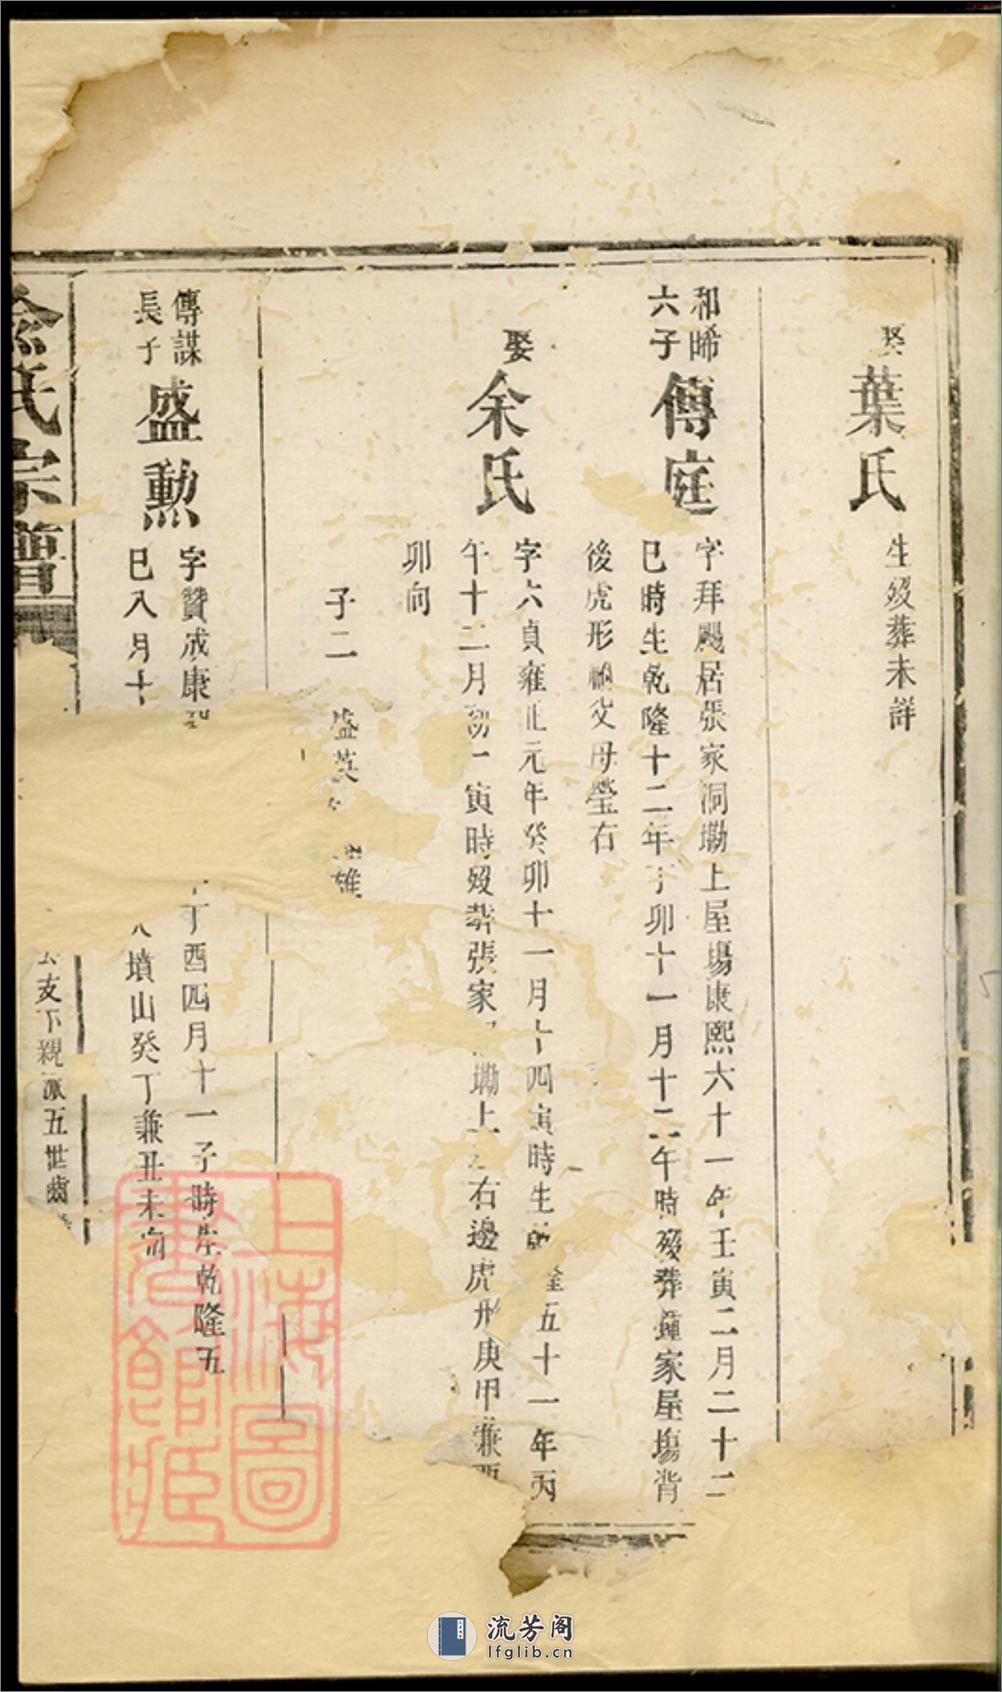 娶葉氏生歿葬未詳
和晞六子傳庭
字拜颺居張家洞墈上屋場康熙六十一年壬寅二月二十二
巳時生乾隆十二年丁卯十一月十二午時歿葬鍾家屋塲背
後虎形父母塋右
娶余氏
字六貞雍正元年癸卯十一月十四寅時生乾隆五十一年丙
午十二月初一寅時歿葬張家墈上右邊虎形庚甲兼酉
卯向
子二 盛英 雄
傳謀長子盛勲
字贊成康
丁酉四月十一子時生乾隆五
巳八月十
墳山癸丁兼丑未向
余氏宗譜
支下親派五世齒
上海圖書館藏
流芳阁
lfglib.cn